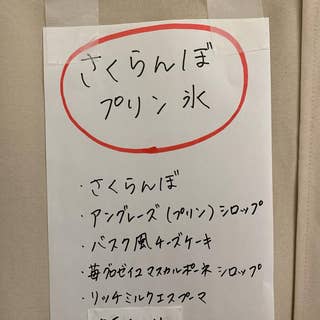 さくらんぼ
プリン氷
・さくらんぼ
・アングレーズ(プリン)シロップ
・バスク風チーズケーキ
・苺グロゼイユマスカルポーネシロップ
・リッチミルクエスプーマ